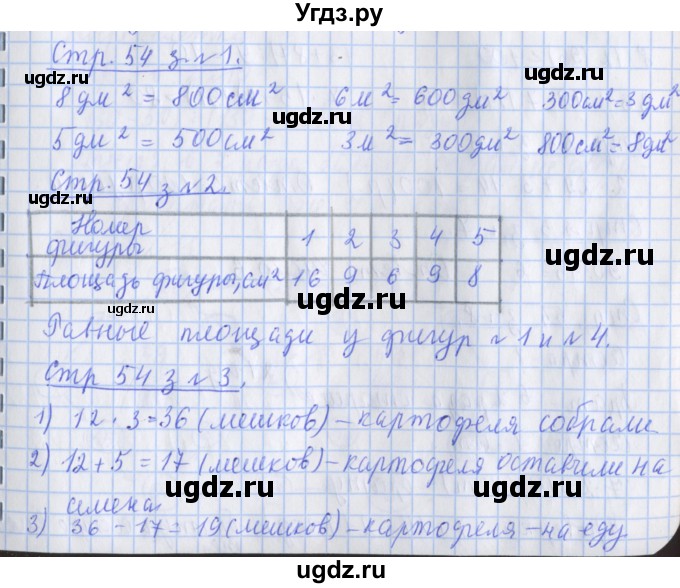 Угдз.ру
Стр. 54 з №1.
ugdz.ru
ugdz.ru
8 дм² = 800 см² 6 м² = 600 дм² 300 см² = 3 дм²
ugdz.ru
5 дм² = 500 см² 3 м² = 300 дм² 800 см² = 8 дм²
Стр. 54 з №2.
ugdz.ru
ugdz.ru
Номер фигуры 1 2 3 4 5
Площадь фигуры, см² 16 9 6 9 8
ugdz.ru
ugdz.ru
Равные площади у фигур №1 и №4.
Стр 54 з №3.
ugdz.ru
1) 12 · 3 = 36 (мешков) – картофеля собрали
ugdz.ru
2) 12 + 5 = 17 (мешков) – картофеля оставили на
ugdz.ru
ugdz.ru
семена
3) 36 – 17 = 19 (мешков) – картофеля – на еду
ugdz.ru
ugdz.ru